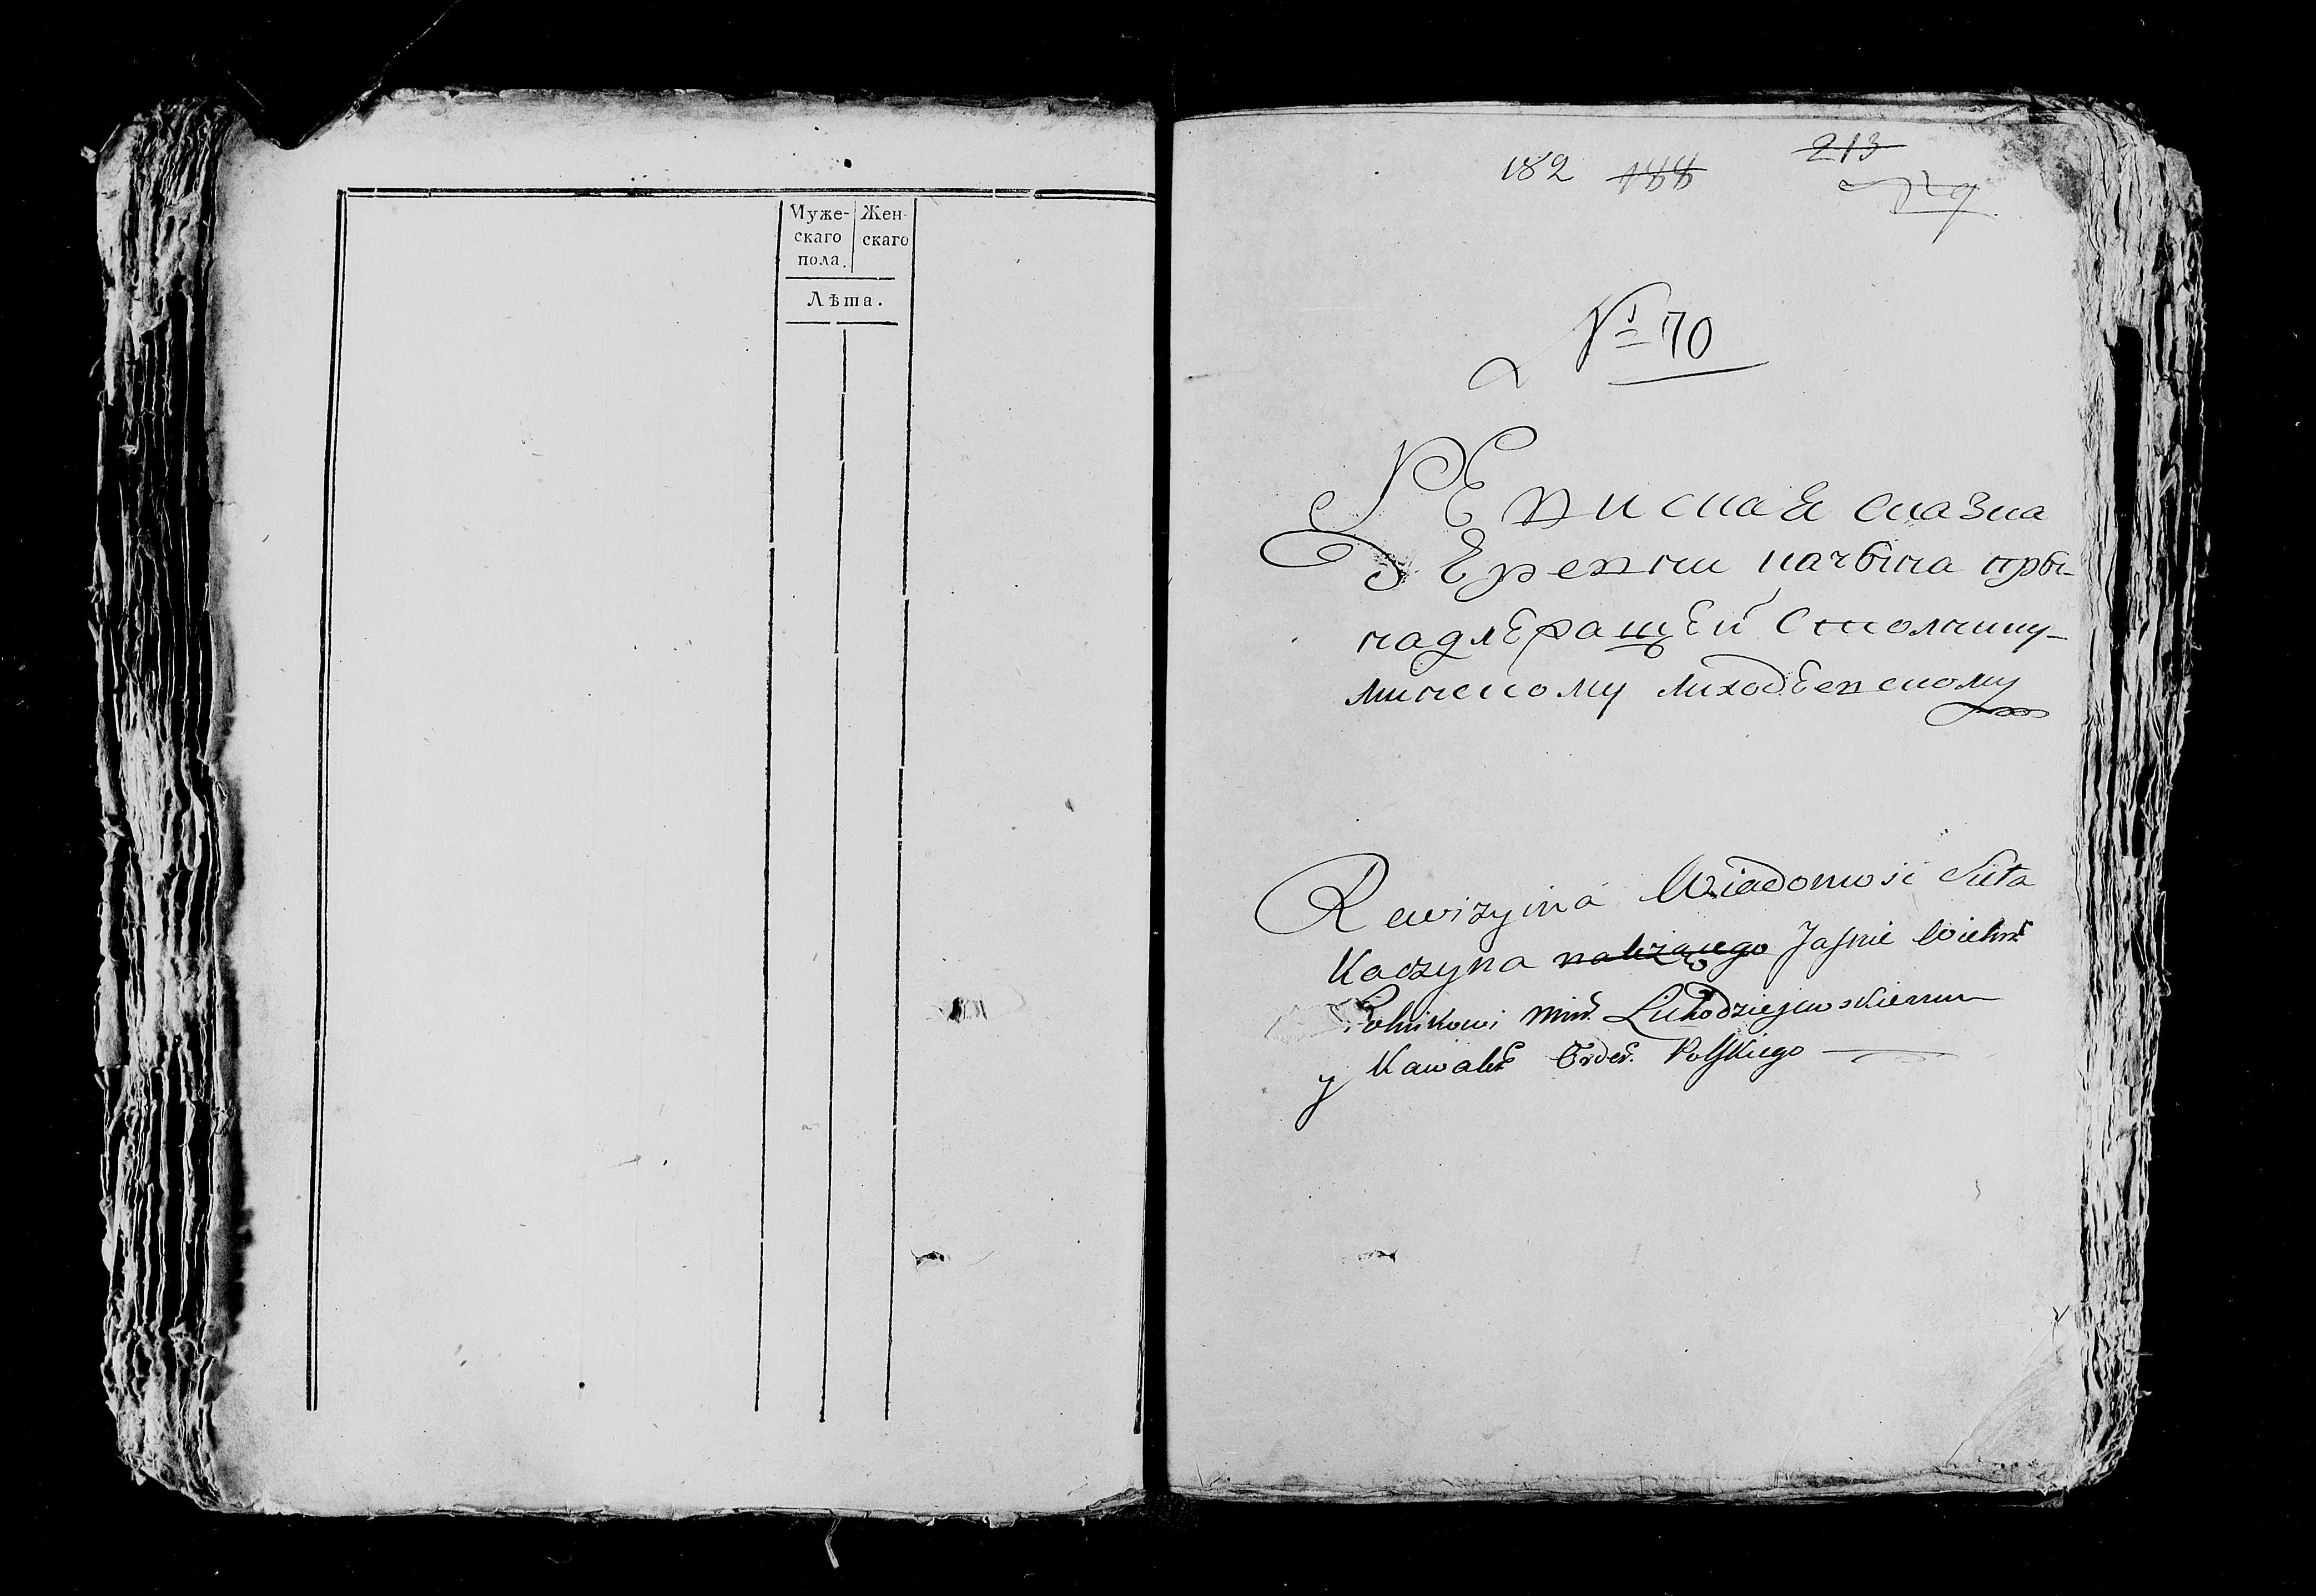 Муже-
скаго
пола.
Жен-
скаго
Лѣта.
182 188 213
№ 70
РЕвиснаЯ сказка
дЕревни качына пры-
надлЕжащЕй Столнику
минскому лиходЕевскому
Rewizyina Wiadomosć Sieła
Kaczyna należącego Jaſnie Wielm
Stolnikowi Miń. Lichodziejewskiemu
y Kawaler. Order. Polſkiego